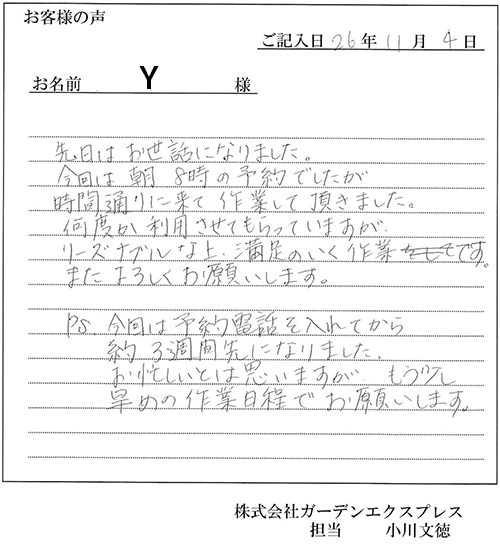 お客様の声
ご記入日 26年 11月 4日
お名前 Y 様
先日はお世話になりました。
今回は朝8時の予約でしたが
時間通りに来て作業して頂きました。
何度か利用させてもらっていますが、
リーズナブルな上、満足のいく作業です。
またよろしくお願いします。
P.S. 今回は予約電話を入れてから
約3週間先になりました。
お忙しいとは思いますが もう少し
早めの作業日程でお願いします。
株式会社ガーデンエクスプレス
担当 小川文徳